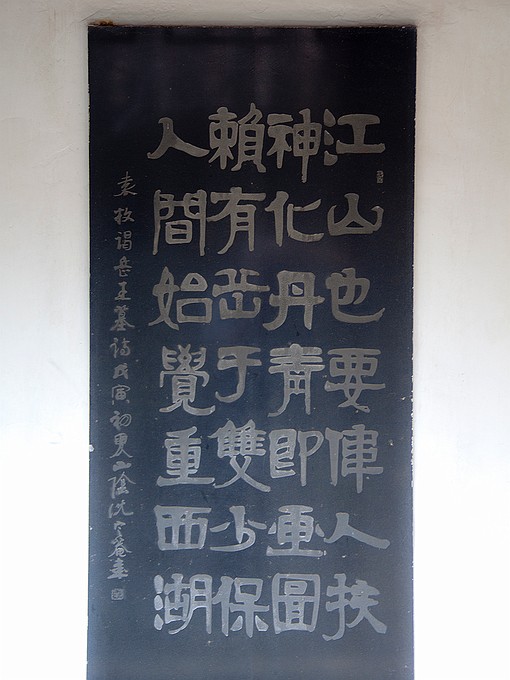 江山也要偉人扶
神化丹青即畫圖
賴有岳于雙少保
人間始覺重西湖
袁枚謁岳王墓詩戊寅初夏山陰沈定庵書